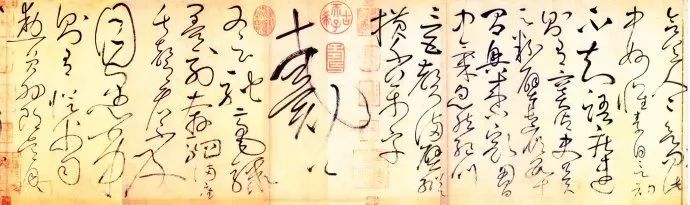 含人人欲問此
中妙懷素自言初
不知語疾速
則有竇御史冀
云粉壁長廊數十
間興來小豁胸
中氣忽然絕叫
三五聲滿壁縱
橫千萬字
戴公
又云馳毫驟
墨列奔駟滿座
失聲看不及
目愚劣
則有從父司
勳員外郎吳興